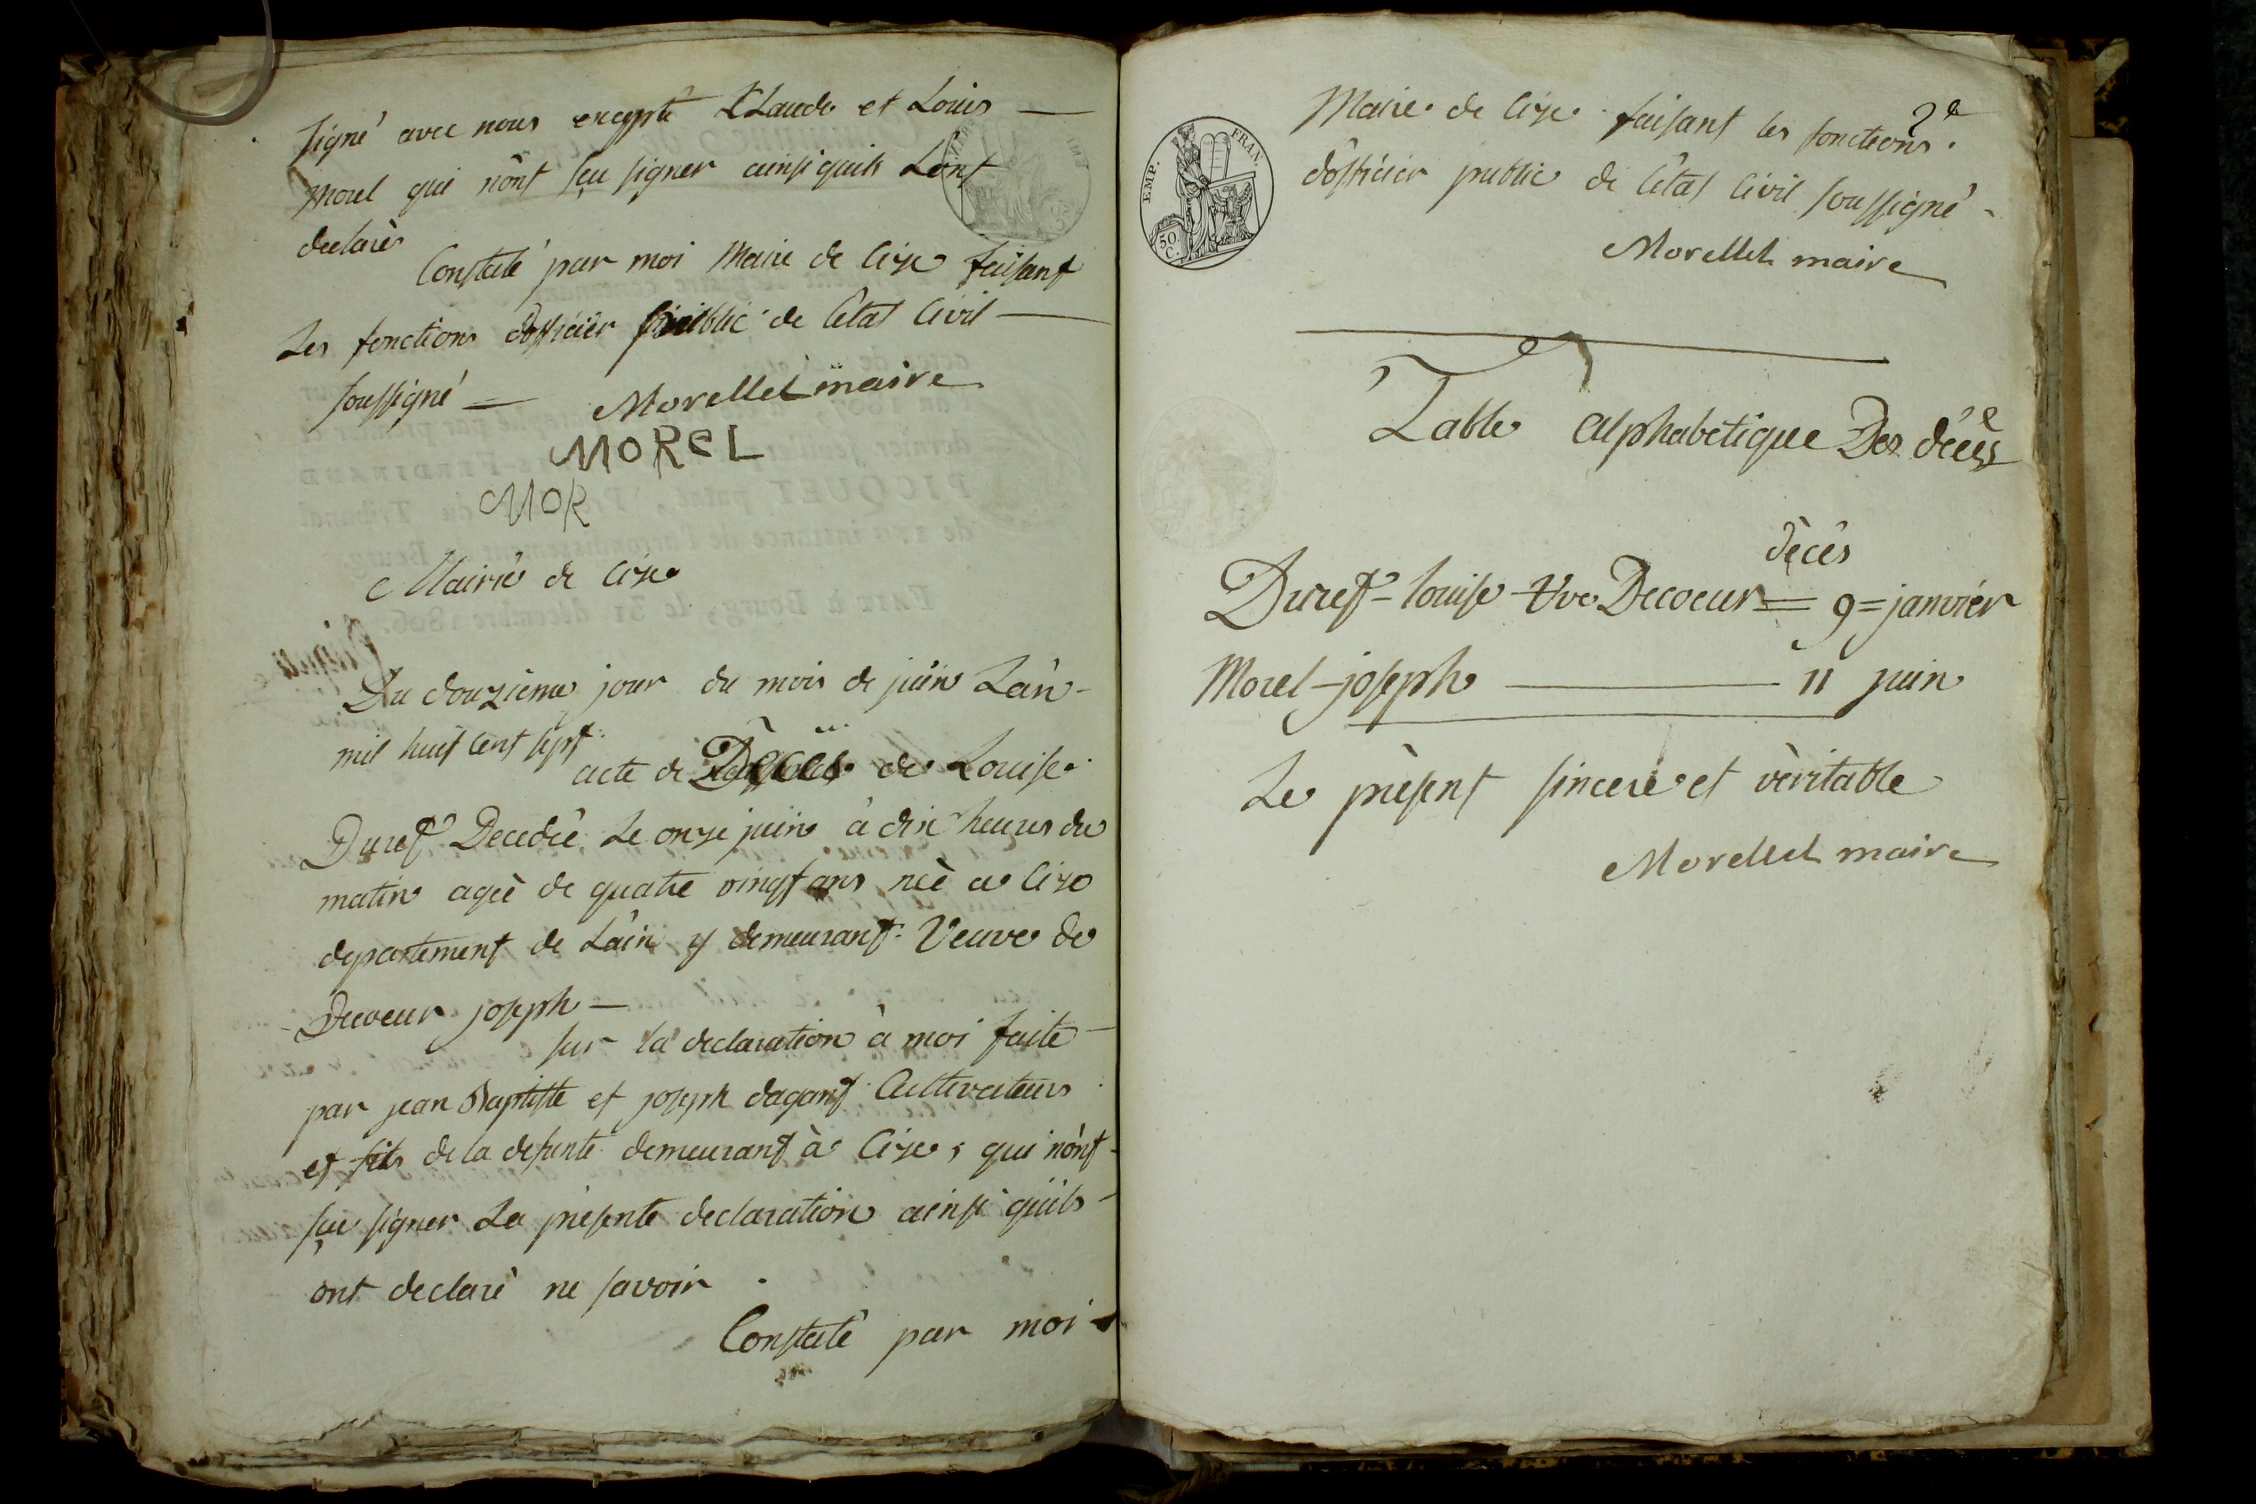 signé avec nous excepté Claude et Louis —
Morel qui n'ont sçu signer ainsi quils Lont
declarés
Constaté par moi Maire de Cize faisant
Les fonctions dofficiér public de l'état Civil —
soussigné — Morellet maire
MOREL
MOR
Mairie de Cize
Du douzieme jour du mois de juin Lan -
mil huit cent sept
acte de Décés de Louise
Duret Decedée Le onze juin à dix heures du
matin agée de quatre vingt ans née a Cize
departement de Lain y demeurant Veuve de
Decoeur joseph —
sur la declaration à moi faite —
par jean Baptiste et joseph dagant Cultivateurs
et fils de la defunte demeurant à Cize, qui n'ont -
sçu signer La présente declaration ainsi quils -
ont declaré ne savoir .
Constaté par moi
2e
Maire de Cize faisant les fonctions
dofficiér public de l'état Civil soussigné -
EMP. FRAN.
50 C.
Morellet maire
Table alphabétique Des décés
décés
Duret - louise vve Decoeur = 9 = janviér
Morel - joseph — 11 juin
Le présent sincere et véritable
Morellet maire